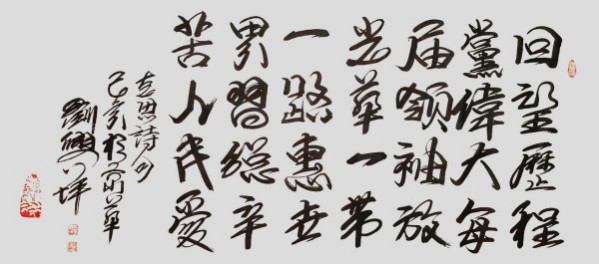 回望歷程
黨偉大每
屆領袖放
光華一帶
一路惠世
界習總辛
苦人民愛
思詩句
己亥於
劉坪